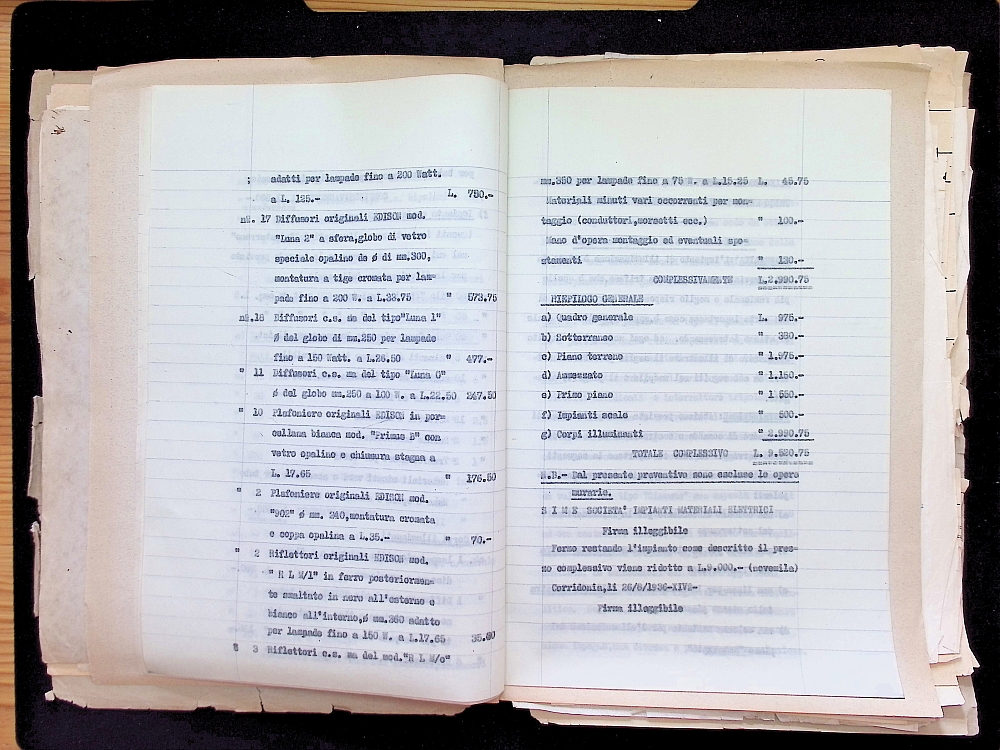 ; adatti per lampade fino a 200 Watt.
a L. 125.- L. 750.-
n°. 17 Diffusori originali EDISON mod.
"Luna 2" a sfera,globo di vetro
speciale opalino de ø di mm.300,
montatura a tige cromata per lam=
pade fino a 200 W. a L.33.75 " 573.75
n°.18 Diffusori c.s. ma del tipo"Luna 1"
ø del globo di mm.250 per lampade
fino a 150 Watt. a L.26.50 " 477.-
" 11 Diffusori c.s. ma del tipo "Luna 0"
ø del globo mm.250 a 100 W. a L.22.50 247.50
" 10 Plafoniere originali EDISON in por=
cellana bianca mod. "Primus B" con
vetro opalino e chiusura stagna a
L. 17.65 " 176.50
" 2 Plafoniere originali EDISON mod.
"902" ø mm. 240,montatura cromata
e coppa opalina a L.35.- " 70.-
" 2 Riflettori originali EDISON mod.
" R L M/1" in ferro posteriormen=
te smaltato in nero all'esterno e
bianco all'interno,ø mm.360 adatto
per lampade fino a 150 W. a L.17.65 35.30
" 3 Riflettori c.s. ma del mod."R L M/o"
mm.350 per lampade fino a 75 W. a L.15.25 L. 45.75
Materiali minuti vari occorrenti per mon=
taggio (conduttori,morsetti ecc.) " 100.-
Mano d'opera montaggio ed eventuali spo=
stamenti " 130.-
COMPLESSIVAMENTE L.2.990.75
RIEPILOGO GENERALE
a) Quadro generale L. 975.-
b) Sotterraneo " 380.-
c) Piano terreno " 1.975.-
d) Ammezzato " 1.150.-
e) Primo piano " 1 550.-
f) Impianti scale " 500.-
g) Corpi illuminanti " 2.990.75
TOTALE COMPLESSIVO L. 9.520.75
N.B.- Dal presente preventivo sono escluse le opere
murarie.
S I M E SOCIETA' IMPIANTI MATERIALI ELETTRICI
Firma illeggibile
Fermo restando l'impianto come descritto il prez=
zo complessivo viene ridotto a L.9.000.- (novemila)
Corridonia,li 26/8/1936-XIV°-
Firma illeggibile